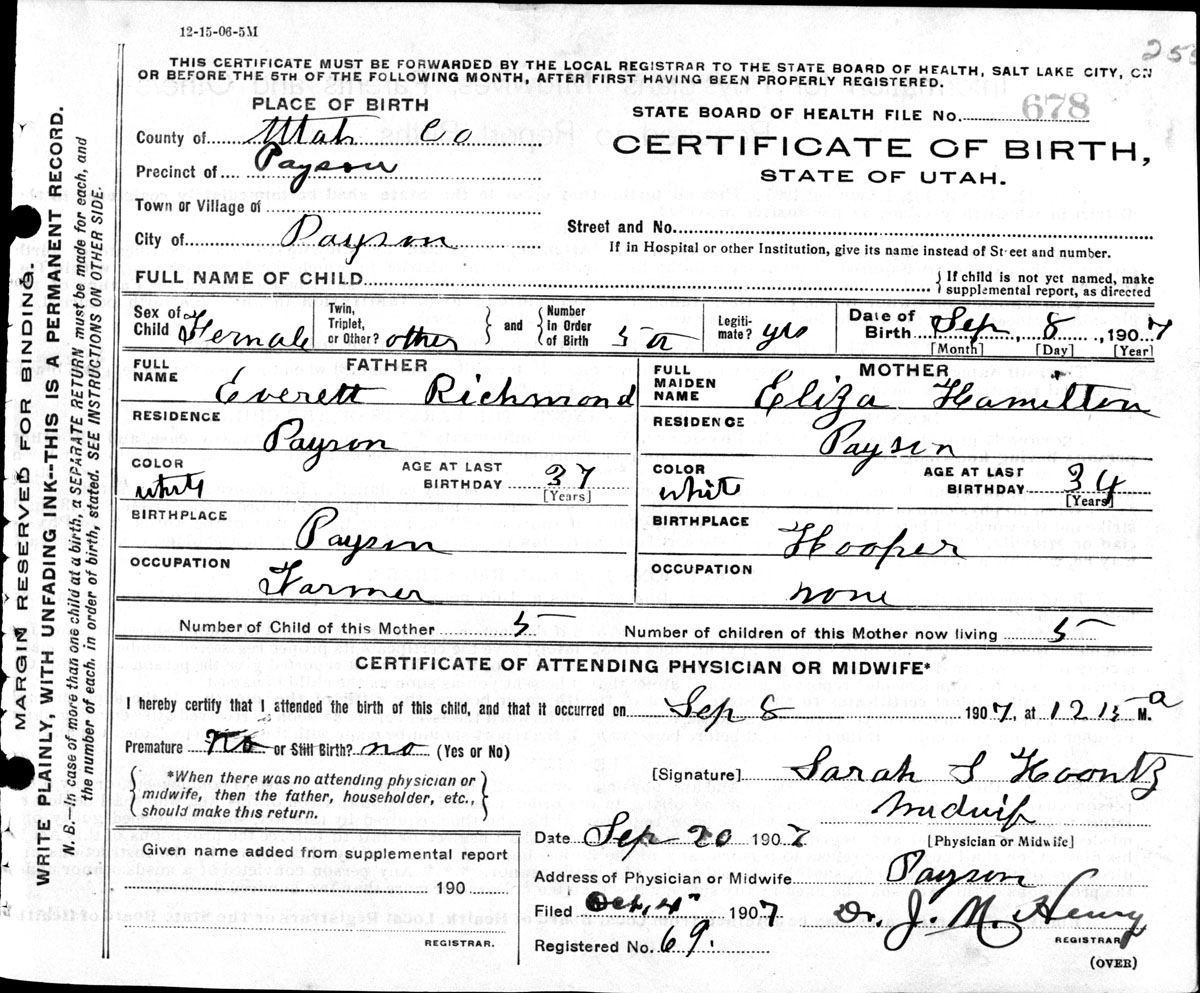 12-15-06-5M
THIS CERTIFICATE MUST BE FORWARDED BY THE LOCAL REGISTRAR TO THE STATE BOARD OF HEALTH, SALT LAKE CITY, ON
OR BEFORE THE 5TH OF THE FOLLOWING MONTH, AFTER FIRST HAVING BEEN PROPERLY REGISTERED.
PLACE OF BIRTH
County of Utah Co
Precinct of Payson
Town or Village of
City of Payson
STATE BOARD OF HEALTH FILE No. 678
CERTIFICATE OF BIRTH,
STATE OF UTAH.
Street and No.
If in Hospital or other Institution, give its name instead of Street and number.
FULL NAME OF CHILD
If child is not yet named, make
supplemental report, as directed
Sex of Child Female
Twin, Triplet, or Other? other
and Number in Order of Birth 5
Legitimate? yes
Date of Birth Sep 8, 1907
[Month] [Day] [Year]
FATHER
FULL NAME Everett Richmond
RESIDENCE Payson
COLOR white
AGE AT LAST BIRTHDAY 37
[Years]
BIRTHPLACE Payson
OCCUPATION Farmer
MOTHER
FULL MAIDEN NAME Eliza Hamilton
RESIDENCE Payson
COLOR white
AGE AT LAST BIRTHDAY 34
[Years]
BIRTHPLACE Hooper
OCCUPATION none
Number of Child of this Mother 5
Number of children of this Mother now living 5
CERTIFICATE OF ATTENDING PHYSICIAN OR MIDWIFE*
I hereby certify that I attended the birth of this child, and that it occurred on Sep 8 1907, at 12 15 a M.
Premature No or Still Birth? no (Yes or No)
*When there was no attending physician or
midwife, then the father, householder, etc.,
should make this return.
[Signature] Sarah S Koontz
Midwife
[Physician or Midwife]
Given name added from supplemental report
190
REGISTRAR.
Date Sep 20 1907
Address of Physician or Midwife Payson
Filed Oct, 4 1907
Dr. J. M. Henry
REGISTRAR
Registered No. 69.
(OVER)
MARGIN RESERVED FOR BINDING.
WRITE PLAINLY, WITH UNFADING INK--THIS IS A PERMANENT RECORD.
N. B. In case of more than one child at a birth, a SEPARATE RETURN must be made for each, and
the number of each, in order of birth, stated. SEE INSTRUCTIONS ON OTHER SIDE.